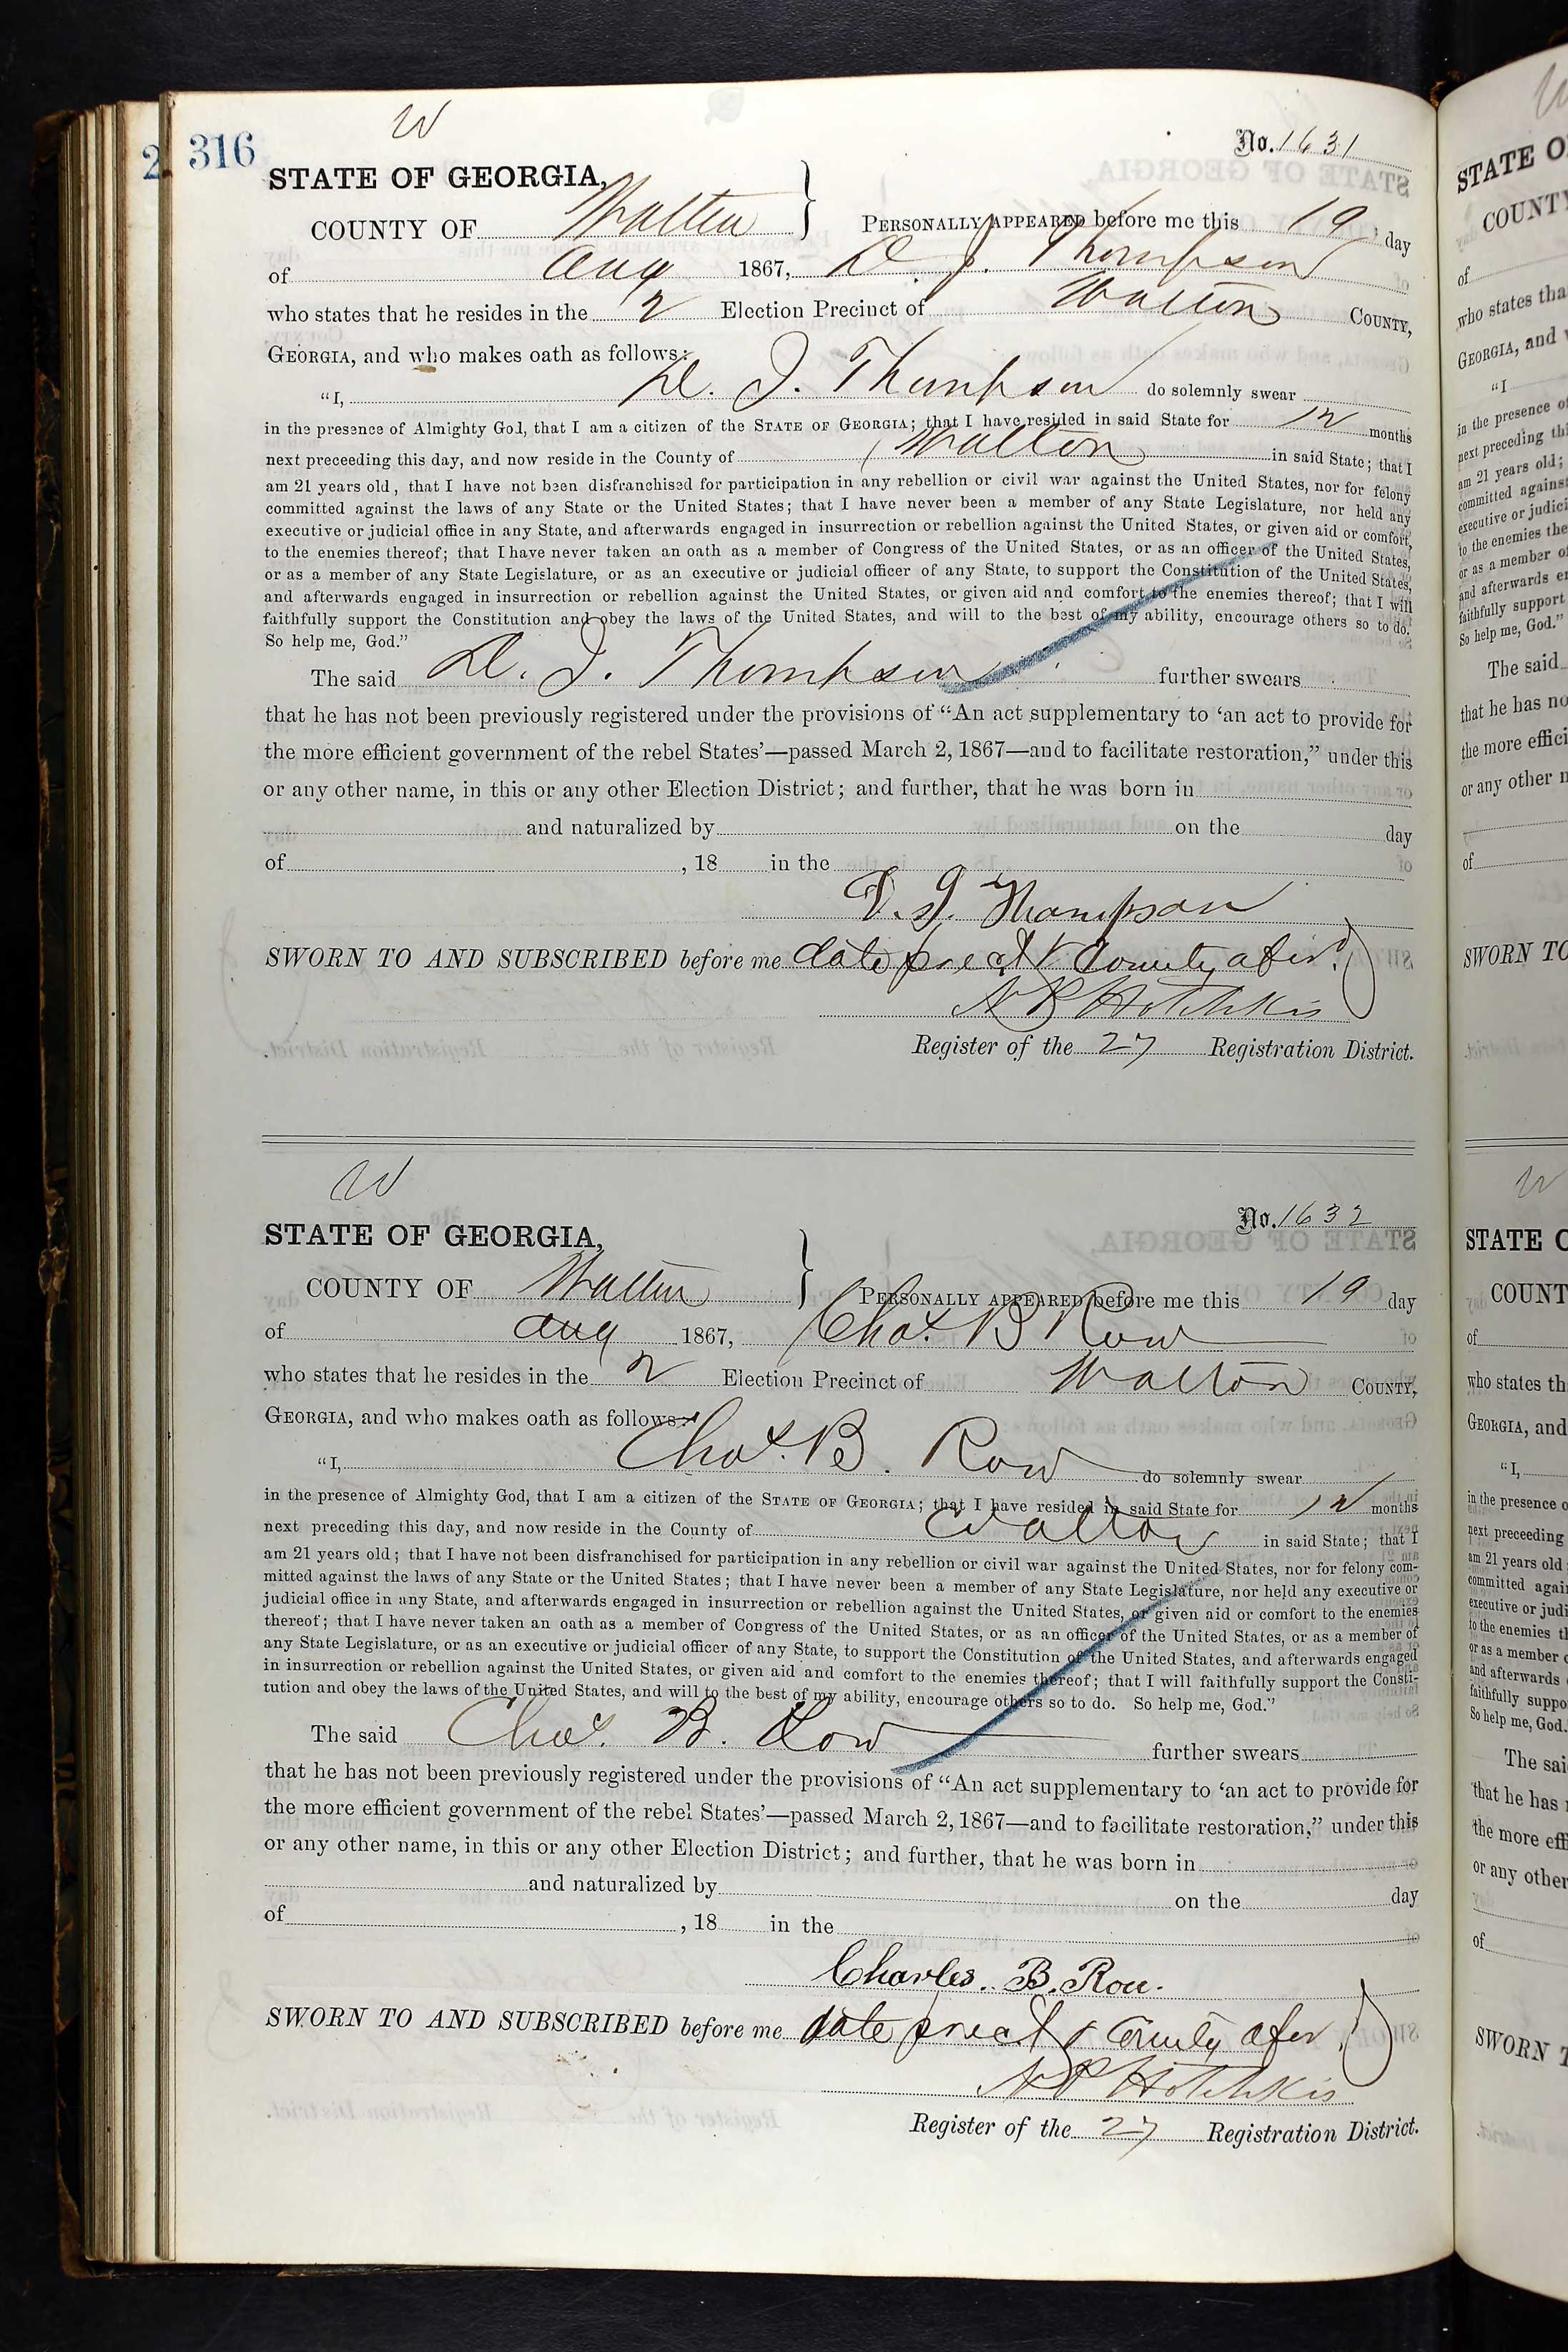 316
W
No. 1631
STATE OF GEORGIA,
COUNTY OF Walton } PERSONALLY APPEARED before me this 19 day
of Aug 1867, D. J. Thompson
who states that he resides in the 2 Election Precinct of Walton COUNTY,
GEORGIA, and who makes oath as follows:
"I, D. J. Thompson do solemnly swear
in the presence of Almighty God, that I am a citizen of the STATE OF GEORGIA; that I have resided in said State for 12 months
next preceeding this day, and now reside in the County of Walton in said State; that I
am 21 years old, that I have not been disfranchised for participation in any rebellion or civil war against the United States, nor for felony
committed against the laws of any State or the United States; that I have never been a member of any State Legislature, nor held any
executive or judicial office in any State, and afterwards engaged in insurrection or rebellion against the United States, or given aid or comfort,
to the enemies thereof; that I have never taken an oath as a member of Congress of the United States, or as an officer of the United States,
or as a member of any State Legislature, or as an executive or judicial officer of any State, to support the Constitution of the United States,
and afterwards engaged in insurrection or rebellion against the United States, or given aid and comfort to the enemies thereof; that I will
faithfully support the Constitution and obey the laws of the United States, and will to the best of my ability, encourage others so to do.
So help me, God."
The said D. J. Thompson further swears
that he has not been previously registered under the provisions of "An act supplementary to 'an act to provide for
the more efficient government of the rebel States'—passed March 2, 1867—and to facilitate restoration," under this
or any other name, in this or any other Election District; and further, that he was born in
and naturalized by on the day
of , 18 in the
D. J. Thompson
SWORN TO AND SUBSCRIBED before me date prect & County afsd.
N P Hotchkis
Register of the 27 Registration District.
W
No. 1632
STATE OF GEORGIA,
COUNTY OF Walton } PERSONALLY APPEARED before me this 19 day
of Aug 1867, Chas. B Row
who states that he resides in the 2 Election Precinct of Walton COUNTY,
GEORGIA, and who makes oath as follows:
"I, Chas. B. Row do solemnly swear
in the presence of Almighty God, that I am a citizen of the STATE OF GEORGIA; that I have resided in said State for 12 months
next preceding this day, and now reside in the County of Walton in said State; that I
am 21 years old; that I have not been disfranchised for participation in any rebellion or civil war against the United States, nor for felony com-
mitted against the laws of any State or the United States; that I have never been a member of any State Legislature, nor held any executive or
judicial office in any State, and afterwards engaged in insurrection or rebellion against the United States, or given aid or comfort to the enemies
thereof; that I have never taken an oath as a member of Congress of the United States, or as an officer of the United States, or as a member of
any State Legislature, or as an executive or judicial officer of any State, to support the Constitution of the United States, and afterwards engaged
in insurrection or rebellion against the United States, or given aid and comfort to the enemies thereof; that I will faithfully support the Consti-
tution and obey the laws of the United States, and will to the best of my ability, encourage others so to do. So help me, God."
The said Chas. B. Row further swears
that he has not been previously registered under the provisions of "An act supplementary to 'an act to provide for
the more efficient government of the rebel States'—passed March 2, 1867—and to facilitate restoration," under this
or any other name, in this or any other Election District; and further, that he was born in
and naturalized by on the day
of , 18 in the
Charles. B. Row.
SWORN TO AND SUBSCRIBED before me date prect & County afsd.
N P Hotchkis
Register of the 27 Registration District.